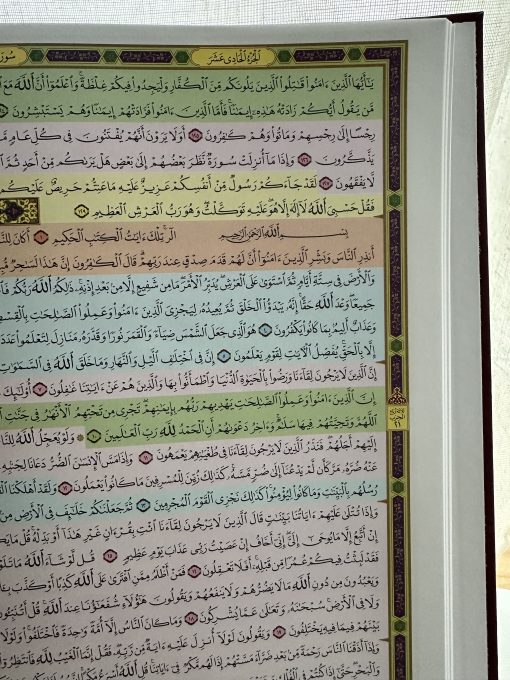 الجُزءُ الحَادِى عَشَرَ
سُورَ
يَٰٓأَيُّهَا ٱلَّذِينَ ءَامَنُوا۟ قَٰتِلُوا۟ ٱلَّذِينَ يَلُونَكُم مِّنَ ٱلْكُفَّارِ وَلْيَجِدُوا۟ فِيكُمْ غِلْظَةً ۚ وَٱعْلَمُوٓا۟ أَنَّ ٱللَّهَ مَعَ
مَّن يَقُولُ أَيُّكُمْ زَادَتْهُ هَٰذِهِۦٓ إِيمَٰنًا ۚ فَأَمَّا ٱلَّذِينَ ءَامَنُوا۟ فَزَادَتْهُمْ إِيمَٰنًا وَهُمْ يَسْتَبْشِرُونَ
رِجْسًا إِلَىٰ رِجْسِهِمْ وَمَاتُوا۟ وَهُمْ كَٰفِرُونَ ١٢٥ أَوَلَا يَرَوْنَ أَنَّهُمْ يُفْتَنُونَ فِى كُلِّ عَامٍ
يَذَّكَّرُونَ ١٢٦ وَإِذَا مَآ أُنزِلَتْ سُورَةٌ نَّظَرَ بَعْضُهُمْ إِلَىٰ بَعْضٍ هَلْ يَرَىٰكُم مِّنْ أَحَدٍ ثُمَّ
لَّا يَفْقَهُونَ ١٢٧ لَقَدْ جَآءَكُمْ رَسُولٌ مِّنْ أَنفُسِكُمْ عَزِيزٌ عَلَيْهِ مَا عَنِتُّمْ حَرِيصٌ عَلَيْكُم
فَقُلْ حَسْبِىَ ٱللَّهُ لَآ إِلَٰهَ إِلَّا هُوَ ۖ عَلَيْهِ تَوَكَّلْتُ ۖ وَهُوَ رَبُّ ٱلْعَرْشِ ٱلْعَظِيمِ ١٢٩
بِسْمِ ٱللَّهِ ٱلرَّحْمَٰنِ ٱلرَّحِيمِ الٓر ۚ تِلْكَ ءَايَٰتُ ٱلْكِتَٰبِ ٱلْحَكِيمِ ١ أَكَانَ لِلنَّا
أَنذِرِ ٱلنَّاسَ وَبَشِّرِ ٱلَّذِينَ ءَامَنُوٓا۟ أَنَّ لَهُمْ قَدَمَ صِدْقٍ عِندَ رَبِّهِمْ ۗ قَالَ ٱلْكَٰفِرُونَ إِنَّ هَٰذَا لَسَٰحِرٌ
وَٱلْأَرْضَ فِى سِتَّةِ أَيَّامٍ ثُمَّ ٱسْتَوَىٰ عَلَى ٱلْعَرْشِ ۖ يُدَبِّرُ ٱلْأَمْرَ ۖ مَا مِن شَفِيعٍ إِلَّا مِنۢ بَعْدِ إِذْنِهِۦ ۚ ذَٰلِكُمُ ٱللَّهُ رَبُّكُمْ
جَمِيعًا ۖ وَعْدَ ٱللَّهِ حَقًّا ۚ إِنَّهُۥ يَبْدَؤُا۟ ٱلْخَلْقَ ثُمَّ يُعِيدُهُۥ لِيَجْزِىَ ٱلَّذِينَ ءَامَنُوا۟ وَعَمِلُوا۟ ٱلصَّٰلِحَٰتِ بِٱلْقِسْ
وَعَذَابٌ أَلِيمٌۢ بِمَا كَانُوا۟ يَكْفُرُونَ ٤ هُوَ ٱلَّذِى جَعَلَ ٱلشَّمْسَ ضِيَآءً وَٱلْقَمَرَ نُورًا وَقَدَّرَهُۥ مَنَازِلَ لِتَعْلَمُوا۟ عَدَدَ
إِلَّا بِٱلْحَقِّ ۚ يُفَصِّلُ ٱلْءَايَٰتِ لِقَوْمٍ يَعْلَمُونَ ٥ إِنَّ فِى ٱخْتِلَٰفِ ٱلَّيْلِ وَٱلنَّهَارِ وَمَا خَلَقَ ٱللَّهُ فِى ٱلسَّمَٰوَٰتِ
إِنَّ ٱلَّذِينَ لَا يَرْجُونَ لِقَآءَنَا وَرَضُوا۟ بِٱلْحَيَوٰةِ ٱلدُّنْيَا وَٱطْمَأَنُّوا۟ بِهَا وَٱلَّذِينَ هُمْ عَنْ ءَايَٰتِنَا غَٰفِلُونَ ٧ أُو۟لَٰٓئِكَ
إِنَّ ٱلَّذِينَ ءَامَنُوا۟ وَعَمِلُوا۟ ٱلصَّٰلِحَٰتِ يَهْدِيهِمْ رَبُّهُم بِإِيمَٰنِهِمْ ۖ تَجْرِى مِن تَحْتِهِمُ ٱلْأَنْهَٰرُ فِى جَنَّٰتِ
ٱللَّهُمَّ وَتَحِيَّتُهُمْ فِيهَا سَلَٰمٌ ۚ وَءَاخِرُ دَعْوَىٰهُمْ أَنِ ٱلْحَمْدُ لِلَّهِ رَبِّ ٱلْعَٰلَمِينَ ١٠ ۞ وَلَوْ يُعَجِّلُ ٱللَّهُ لِلنَّا
الحِزْب
٢١
إِلَيْهِمْ أَجَلُهُمْ ۖ فَنَذَرُ ٱلَّذِينَ لَا يَرْجُونَ لِقَآءَنَا فِى طُغْيَٰنِهِمْ يَعْمَهُونَ ١١ وَإِذَا مَسَّ ٱلْإِنسَٰنَ ٱلضُّرُّ دَعَانَا لِجَنۢبِهِۦٓ
عَنْهُ ضُرَّهُۥ مَرَّ كَأَن لَّمْ يَدْعُنَآ إِلَىٰ ضُرٍّ مَّسَّهُۥ ۚ كَذَٰلِكَ زُيِّنَ لِلْمُسْرِفِينَ مَا كَانُوا۟ يَعْمَلُونَ ١٢ وَلَقَدْ أَهْلَكْنَا
رُسُلُهُم بِٱلْبَيِّنَٰتِ وَمَا كَانُوا۟ لِيُؤْمِنُوا۟ ۚ كَذَٰلِكَ نَجْزِى ٱلْقَوْمَ ٱلْمُجْرِمِينَ ١٣ ثُمَّ جَعَلْنَٰكُمْ خَلَٰٓئِفَ فِى ٱلْأَرْضِ
وَإِذَا تُتْلَىٰ عَلَيْهِمْ ءَايَاتُنَا بَيِّنَٰتٍ ۙ قَالَ ٱلَّذِينَ لَا يَرْجُونَ لِقَآءَنَا ٱئْتِ بِقُرْءَانٍ غَيْرِ هَٰذَآ أَوْ بَدِّلْهُ ۚ قُلْ مَا
إِنْ أَتَّبِعُ إِلَّا مَا يُوحَىٰٓ إِلَىَّ ۖ إِنِّىٓ أَخَافُ إِنْ عَصَيْتُ رَبِّى عَذَابَ يَوْمٍ عَظِيمٍ ١٥ قُل لَّوْ شَآءَ ٱللَّهُ مَا تَلَوْ
فَقَدْ لَبِثْتُ فِيكُمْ عُمُرًا مِّن قَبْلِهِۦٓ ۚ أَفَلَا تَعْقِلُونَ ١٦ فَمَنْ أَظْلَمُ مِمَّنِ ٱفْتَرَىٰ عَلَى ٱللَّهِ كَذِبًا أَوْ كَذَّبَ
وَيَعْبُدُونَ مِن دُونِ ٱللَّهِ مَا لَا يَضُرُّهُمْ وَلَا يَنفَعُهُمْ وَيَقُولُونَ هَٰٓؤُلَآءِ شُفَعَٰٓؤُنَا عِندَ ٱللَّهِ ۚ قُلْ أَتُنَبِّـُٔونَ
وَلَا فِى ٱلْأَرْضِ ۚ سُبْحَٰنَهُۥ وَتَعَٰلَىٰ عَمَّا يُشْرِكُونَ ١٨ وَمَا كَانَ ٱلنَّاسُ إِلَّآ أُمَّةً وَٰحِدَةً فَٱخْتَلَفُوا۟ ۚ وَلَوْلَا
بَيْنَهُمْ فِيمَا فِيهِ يَخْتَلِفُونَ ١٩ وَيَقُولُونَ لَوْلَآ أُنزِلَ عَلَيْهِ ءَايَةٌ مِّن رَّبِّهِۦ ۖ فَقُلْ إِنَّمَا ٱلْغَيْبُ لِلَّهِ فَٱنتَظِرُوٓا۟
وَإِذَآ أَذَقْنَا ٱلنَّاسَ رَحْمَةً مِّنۢ بَعْدِ ضَرَّآءَ مَسَّتْهُمْ إِذَا لَهُم مَّكْرٌ فِىٓ ءَايَاتِنَا ۚ قُلِ ٱللَّهُ أَسْرَعُ مَكْرًا
وَٱلْبَحْرِ ۖ حَتَّىٰٓ إِذَا كُنتُمْ فِى ٱلْفُلْكِ